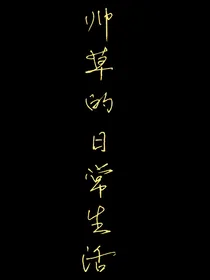 帅草的日常生活